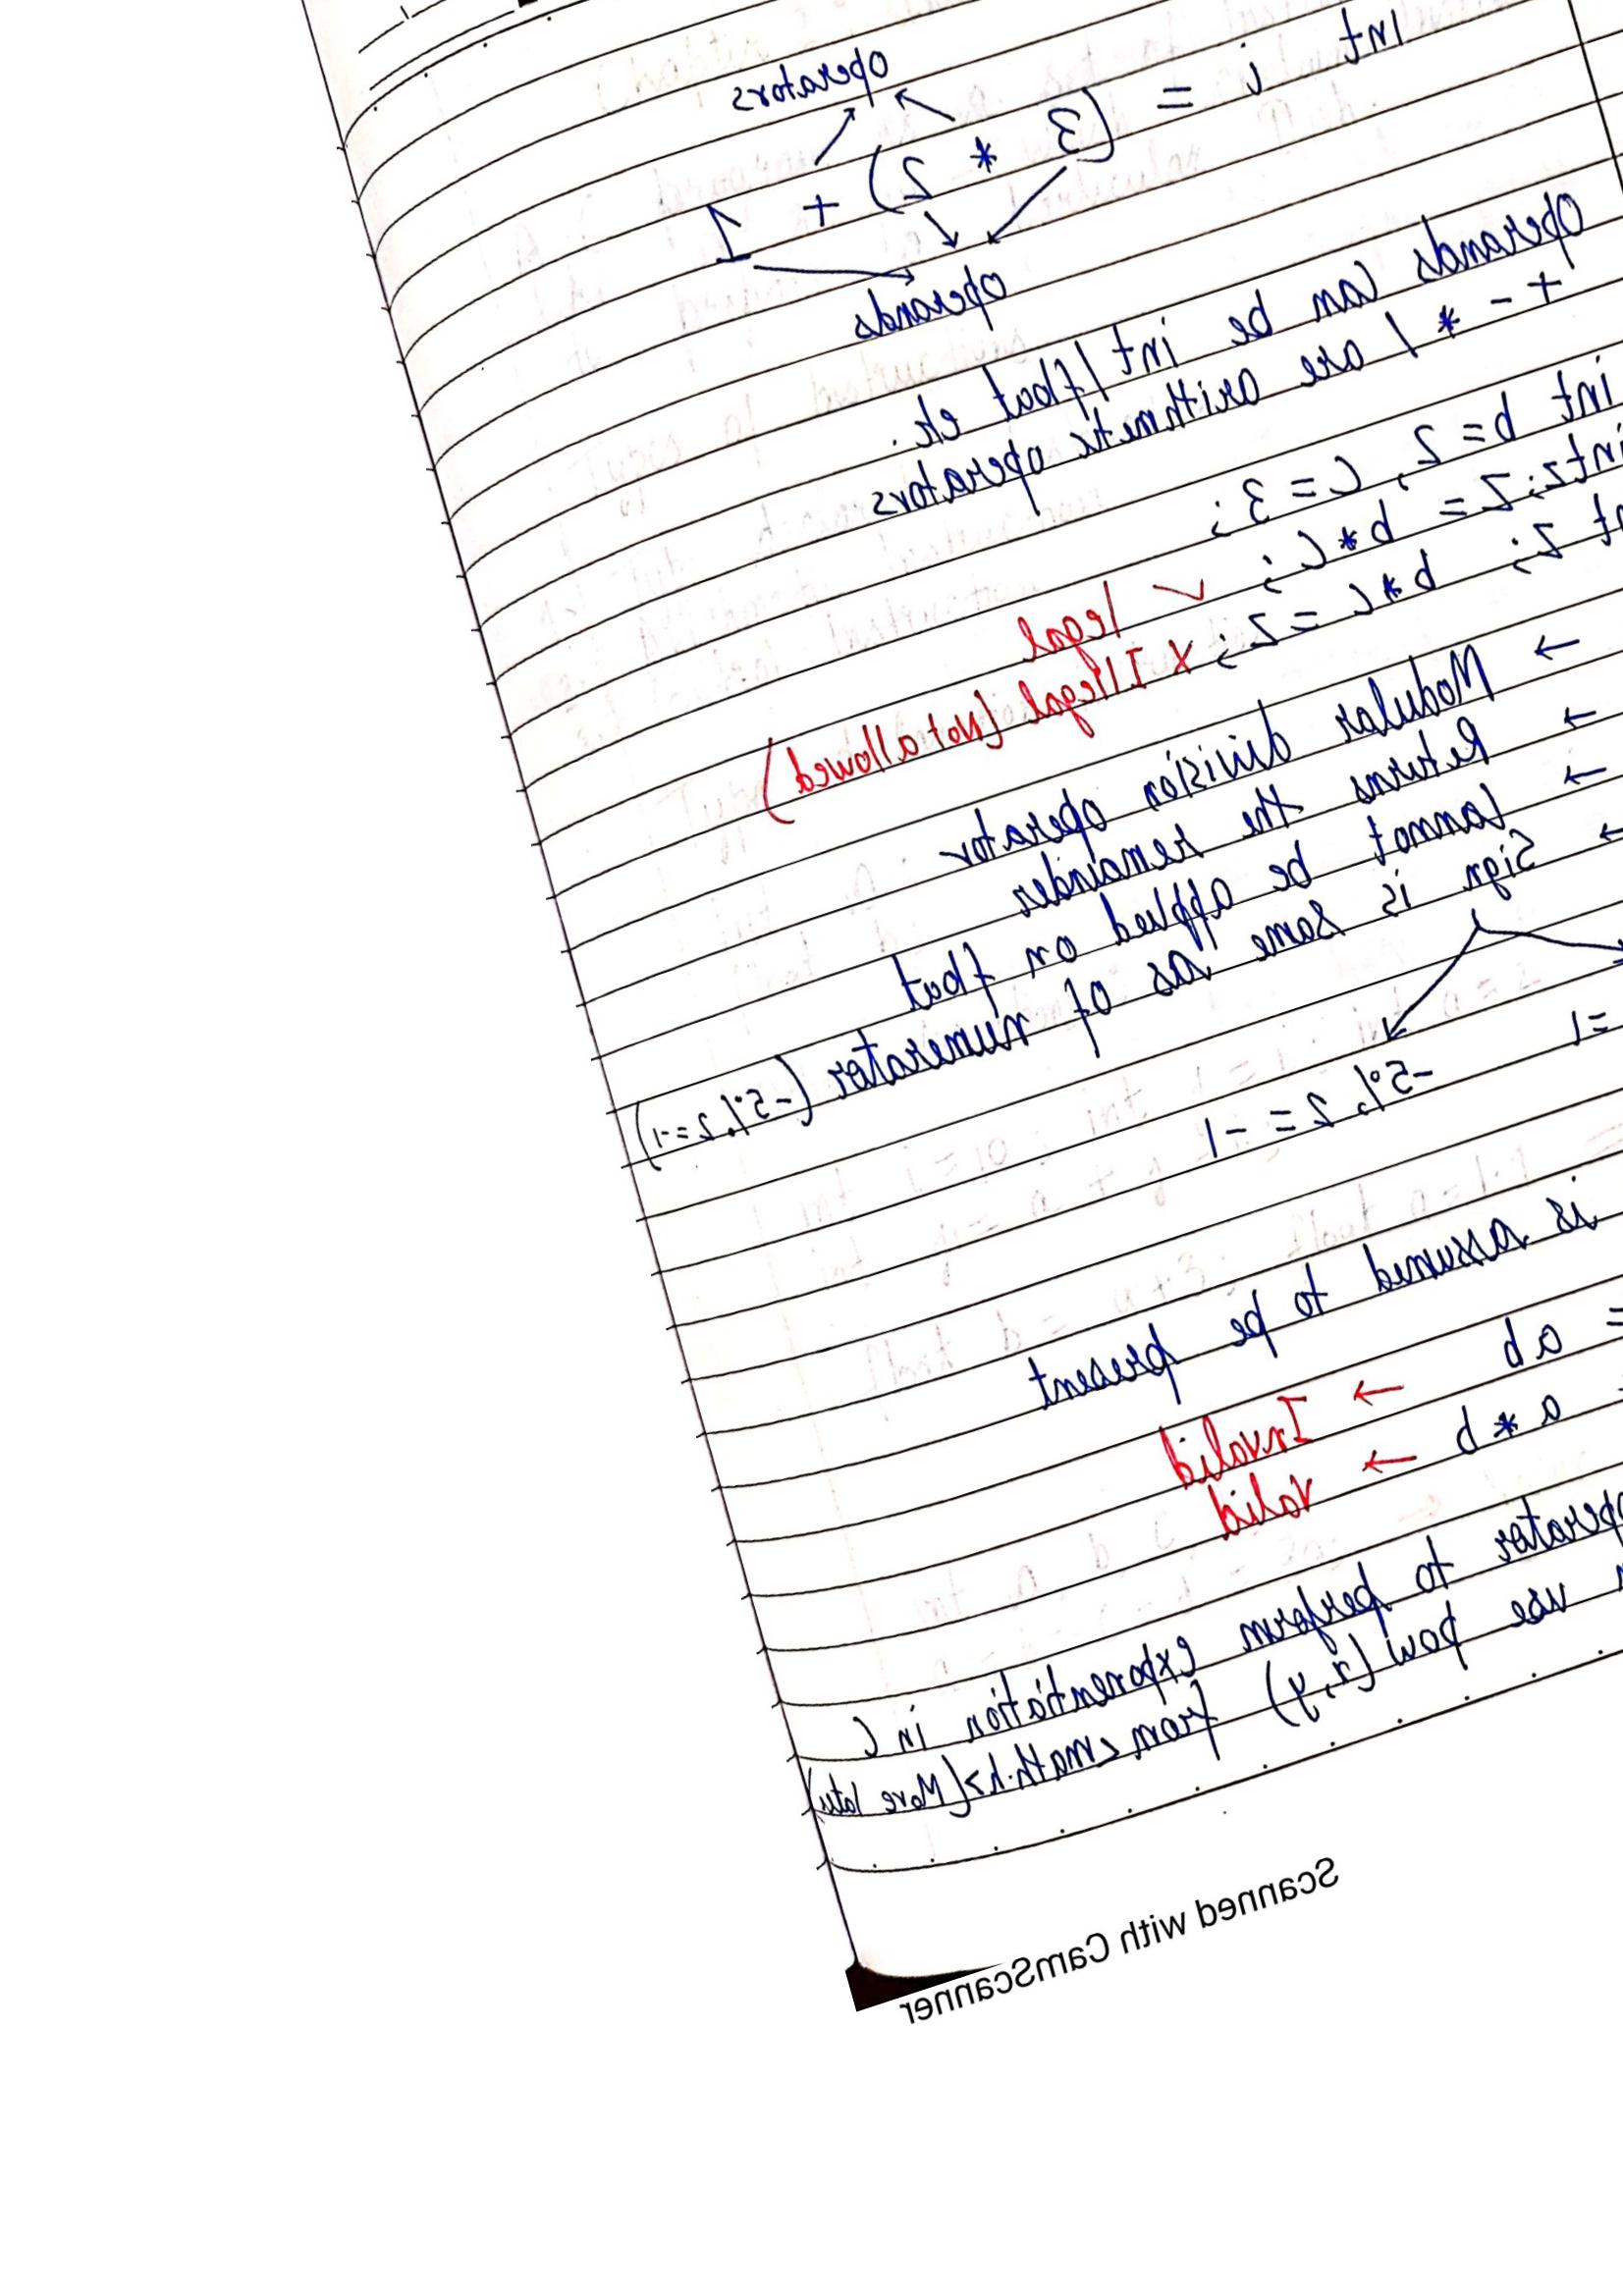 operators
int i = (3 * 2) + 1
operands
Operands can be int/float etc.
+ - * / are arithmetic operators
int b=2, c=3;
int z; z= b*c; ✓ legal
z; b*c =z; X Illegal (Not allowed)
→ Modular division operator
→ Returns the remainder
→ Cannot be applied on float
→ Sign is same as of numerator (-5%2=-1)
=1
-5% 2 = -1
is assumed to be present
= ab → Invalid
a * b → valid
operator to perform exponentiation in C
use pow(x,y) from <math.h>(More later)
Scanned with CamScanner